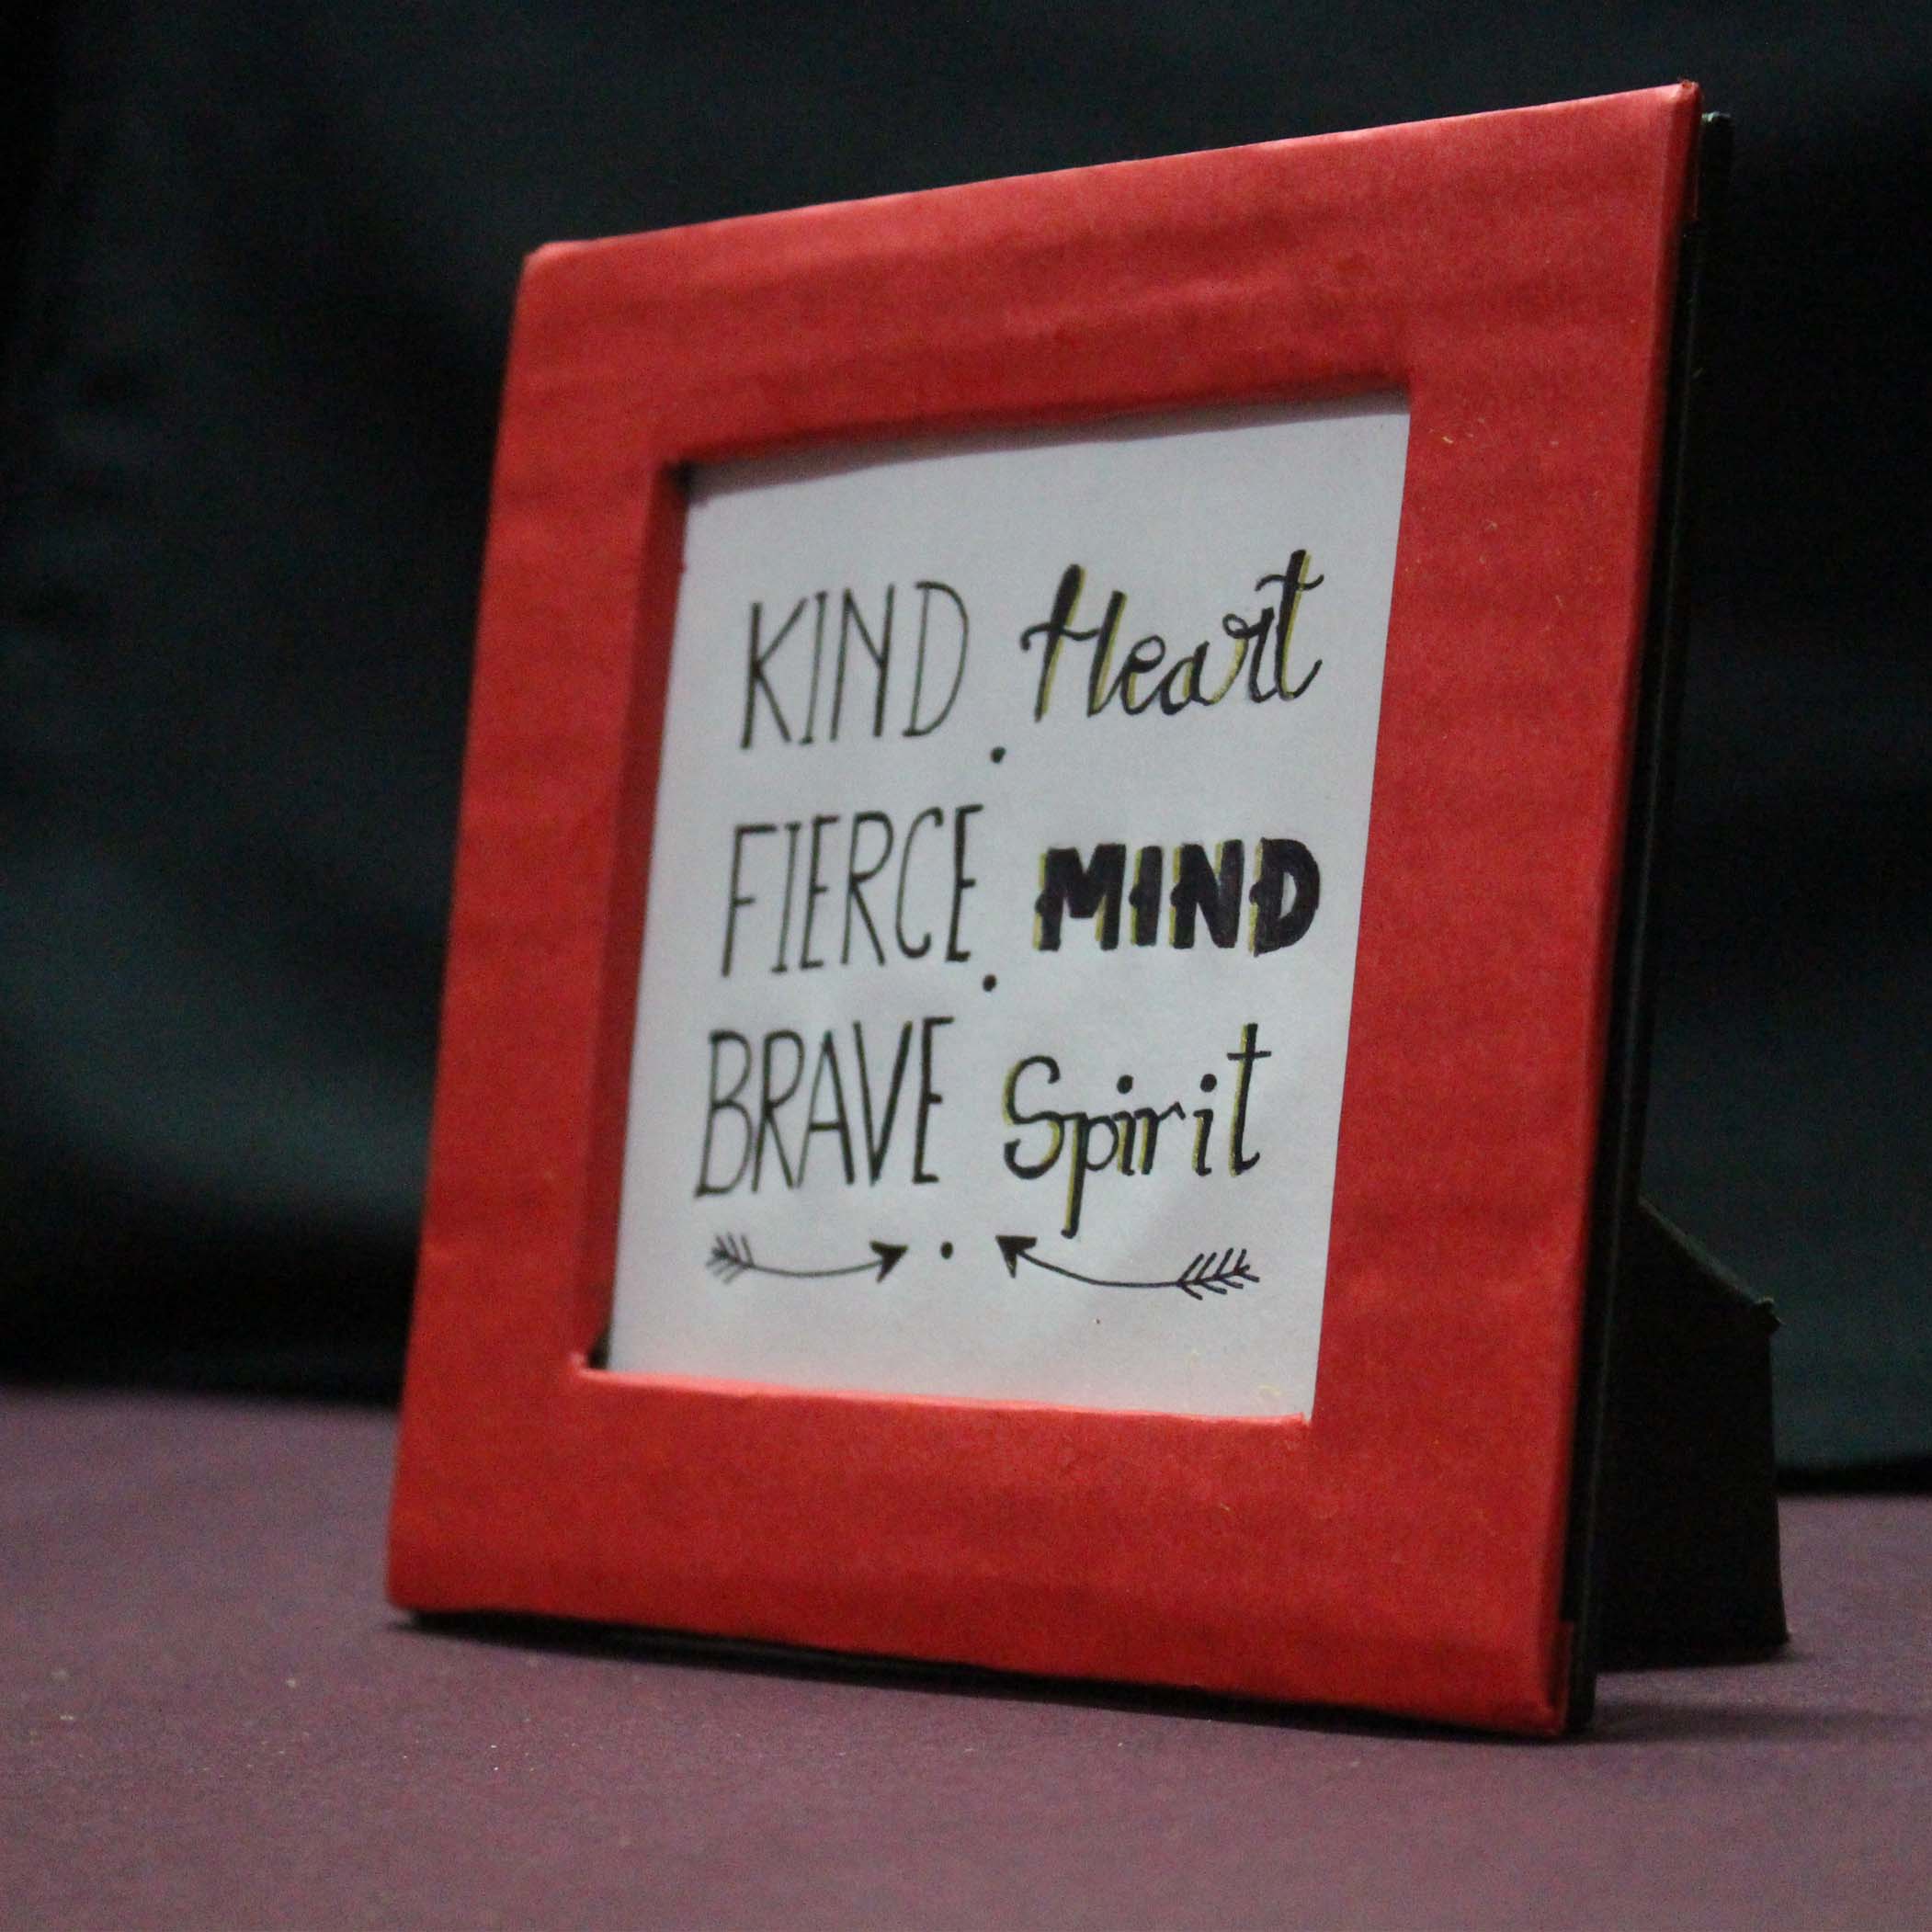 KIND Heart
.
FIERCE MIND
.
BRAVE Spirit